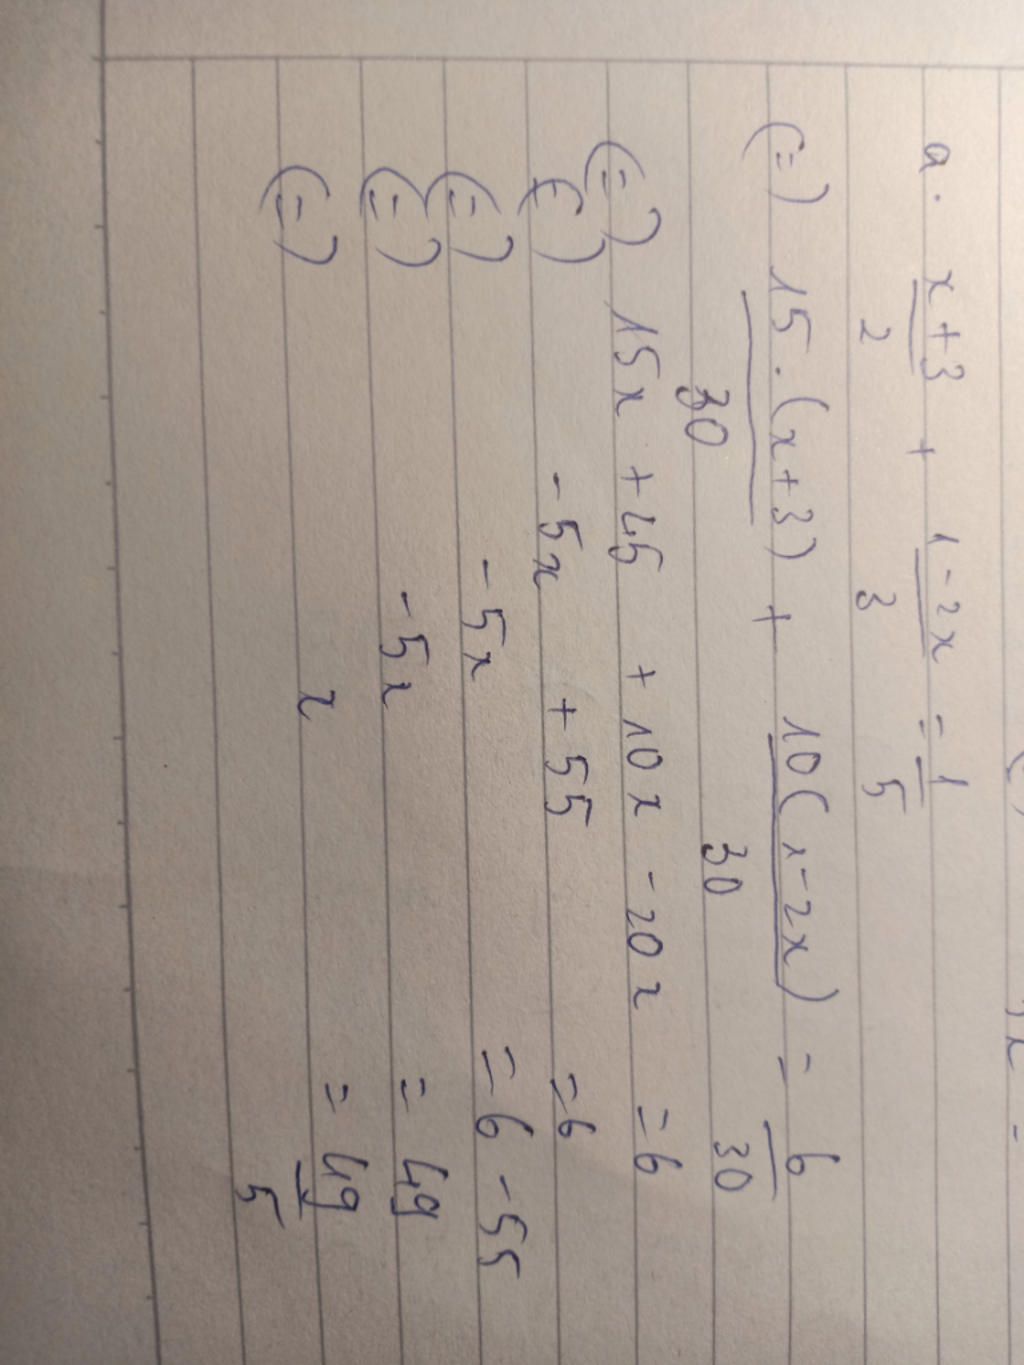 a. (x+3)/2 + (1-2x)/3 = 1/5
(=) 15.(x+3)/30 + 10(1-2x)/30 = 6/30
(=) 15x + 45 + 10x - 20x = 6
(=) -5x + 55 = 6
(=) -5x = 6 - 55
(=) -5x = 49
(=) x = 49/5